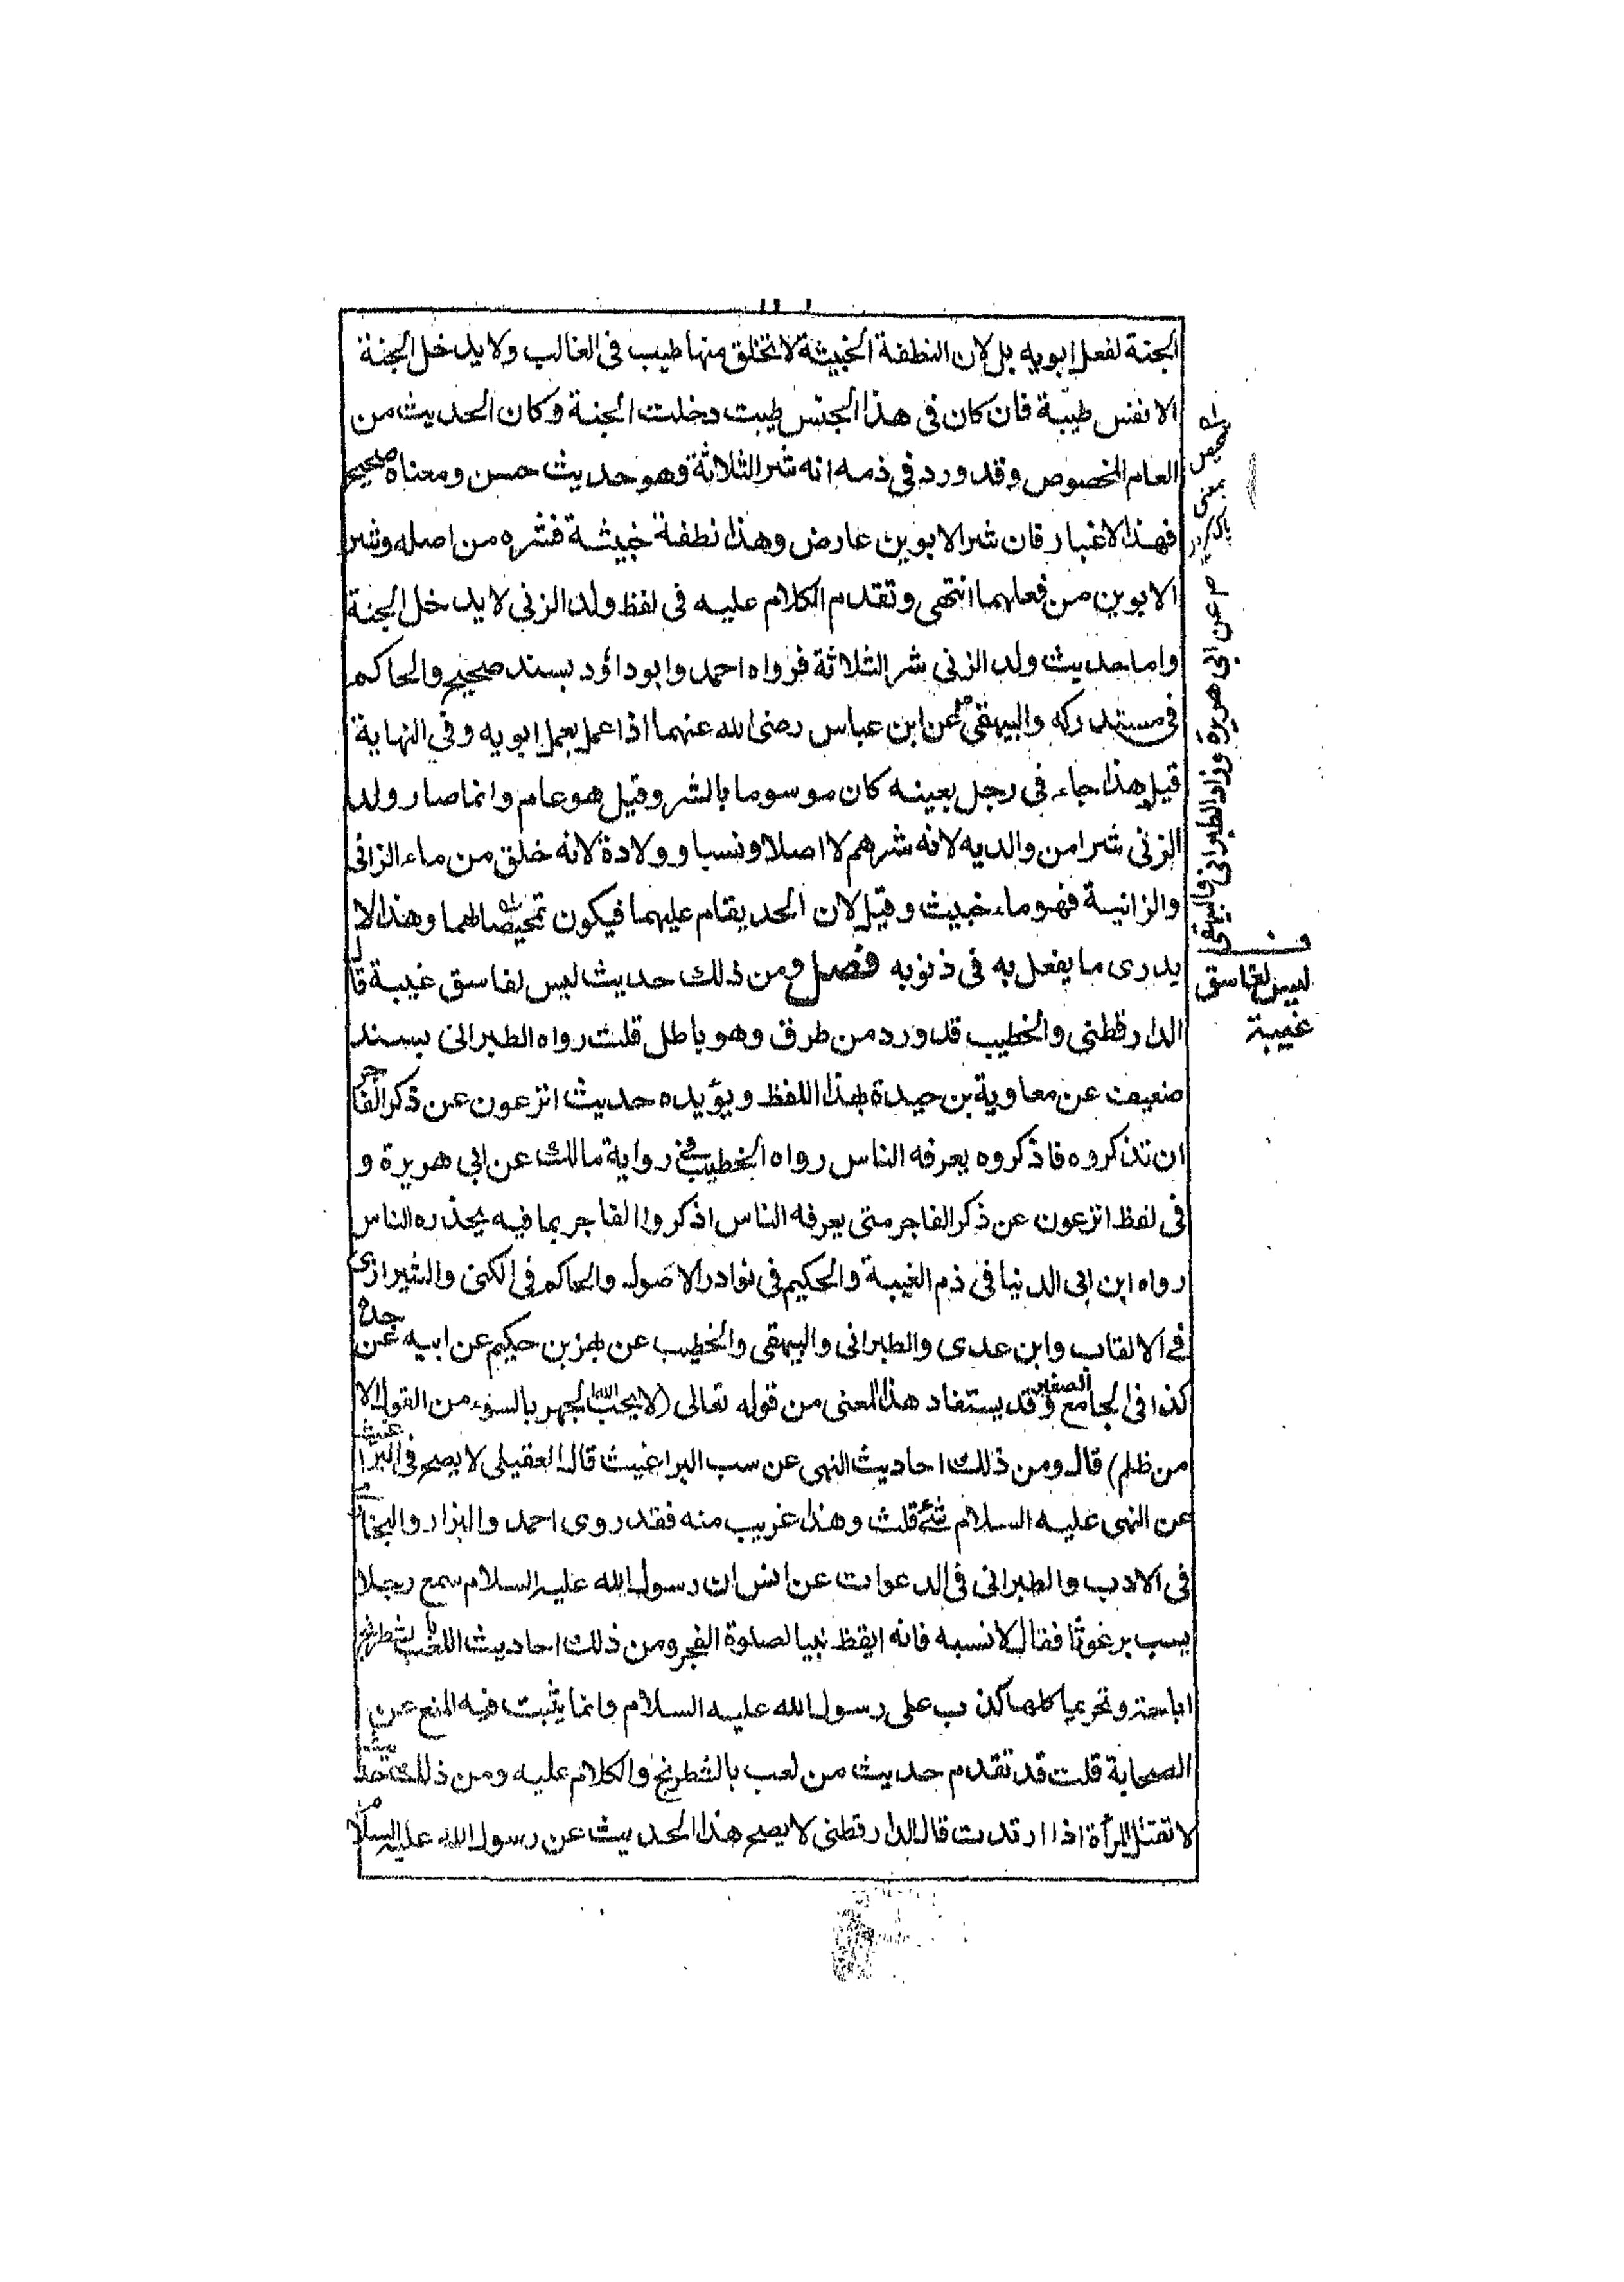 الجنة لفعل ابويه بل لان النطفة الخبيثة لا تخلق منها طيب فى الغالب ولا يدخل الجنة
الا نفس طيبة فان كان فى هذا الجنس طيبت دخلت الجنة وكان الحديث من
العام المخصوص وقد ورد فى ذمه انه شر الثلاثة وهو حديث حسن ومعناه صحيح
فهذا الاغبار فان شر الابوين عارض وهذا نطفة خبيثة فشره من اصله وشر
الابوين من فعلهما انتهى وتقدم الكلام عليه فى لفظ ولد الزنى لا يدخل الجنة
واما حديث ولد الزنى شر الثلاثة فرواه احمد وابو داؤد بسند صحيح والحاكم
فى مستدركه والبيهقى عن ابن عباس رضى الله عنهما اذا عمل بعمل ابويه وفى النهاية
قيل هذا جاء فى رجل بعينه كان موسوما بالشر وقيل هو عام وانما صار ولد
الزنى شرا من والديه لانه شرهم لا اصلا ونسبا وولادة لانه خلق من ماء الزانى
والزانية فهو ماء خبيث وقيل لان الحد يقام عليهما فيكون تمحيصا لهما وهذا لا
يدرى ما يفعل به فى ذنوبه فصل ومن ذلك حديث ليس لفاسق غيبة قال
الدارقطنى والخطيب قد ورد من طرق وهو باطل قلت رواه الطبرانى بسند
ضعيف عن معاوية بن حيدة بهذا اللفظ ويؤيده حديث اتزعون عن ذكر الفاجر
ان تذكروه فاذكروه يعرفه الناس رواه الخطيب فى رواية مالك عن ابى هريرة و
فى لفظ اتزعون عن ذكر الفاجر متى يعرفه الناس اذكروا الفاجر بما فيه يحذره الناس
رواه ابن ابى الدنيا فى ذم الغيبة والحكيم فى نوادر الاصول والحاكم فى الكنى والشيرازى
فى الالقاب وابن عدى والطبرانى والبيهقى والخطيب عن بهز بن حكيم عن ابيه عن جده
كذا فى الجامع الصغير وقد يستفاد هذا المعنى من قوله تعالى (لا يحب الله الجهر بالسوء من القول الا
من ظلم) قال ومن ذلك احاديث النهى عن سب البراغيث قال العقيلى لا يصح فى البراغيث
عن النبى عليه السلام شئ قلت وهذا غريب منه فقد روى احمد والبزار والبخارى
فى الادب والطبرانى فى الدعوات عن انس ان رسول الله عليه السلام سمع رجلا
يسب برغوثا فقال لا تسبه فانه ايقظ نبيا لصلوة الفجر ومن ذلك احاديث اللعب بالشطرنج
اباحة وتحريما كلها كذب على رسول الله عليه السلام وانما يثبت فيه المنع عن
الصحابة قلت قد تقدم حديث من لعب بالشطرنج والكلام عليه ومن ذلك حديث
لا تقتل المرأة اذا ارتدت قال الدارقطنى لا يصح هذا الحديث عن رسول الله عليه السلام
بمعنى
عن ابى هريرة وزاد الطبرانى والبيهقى
ليس لفاسق
غيبة